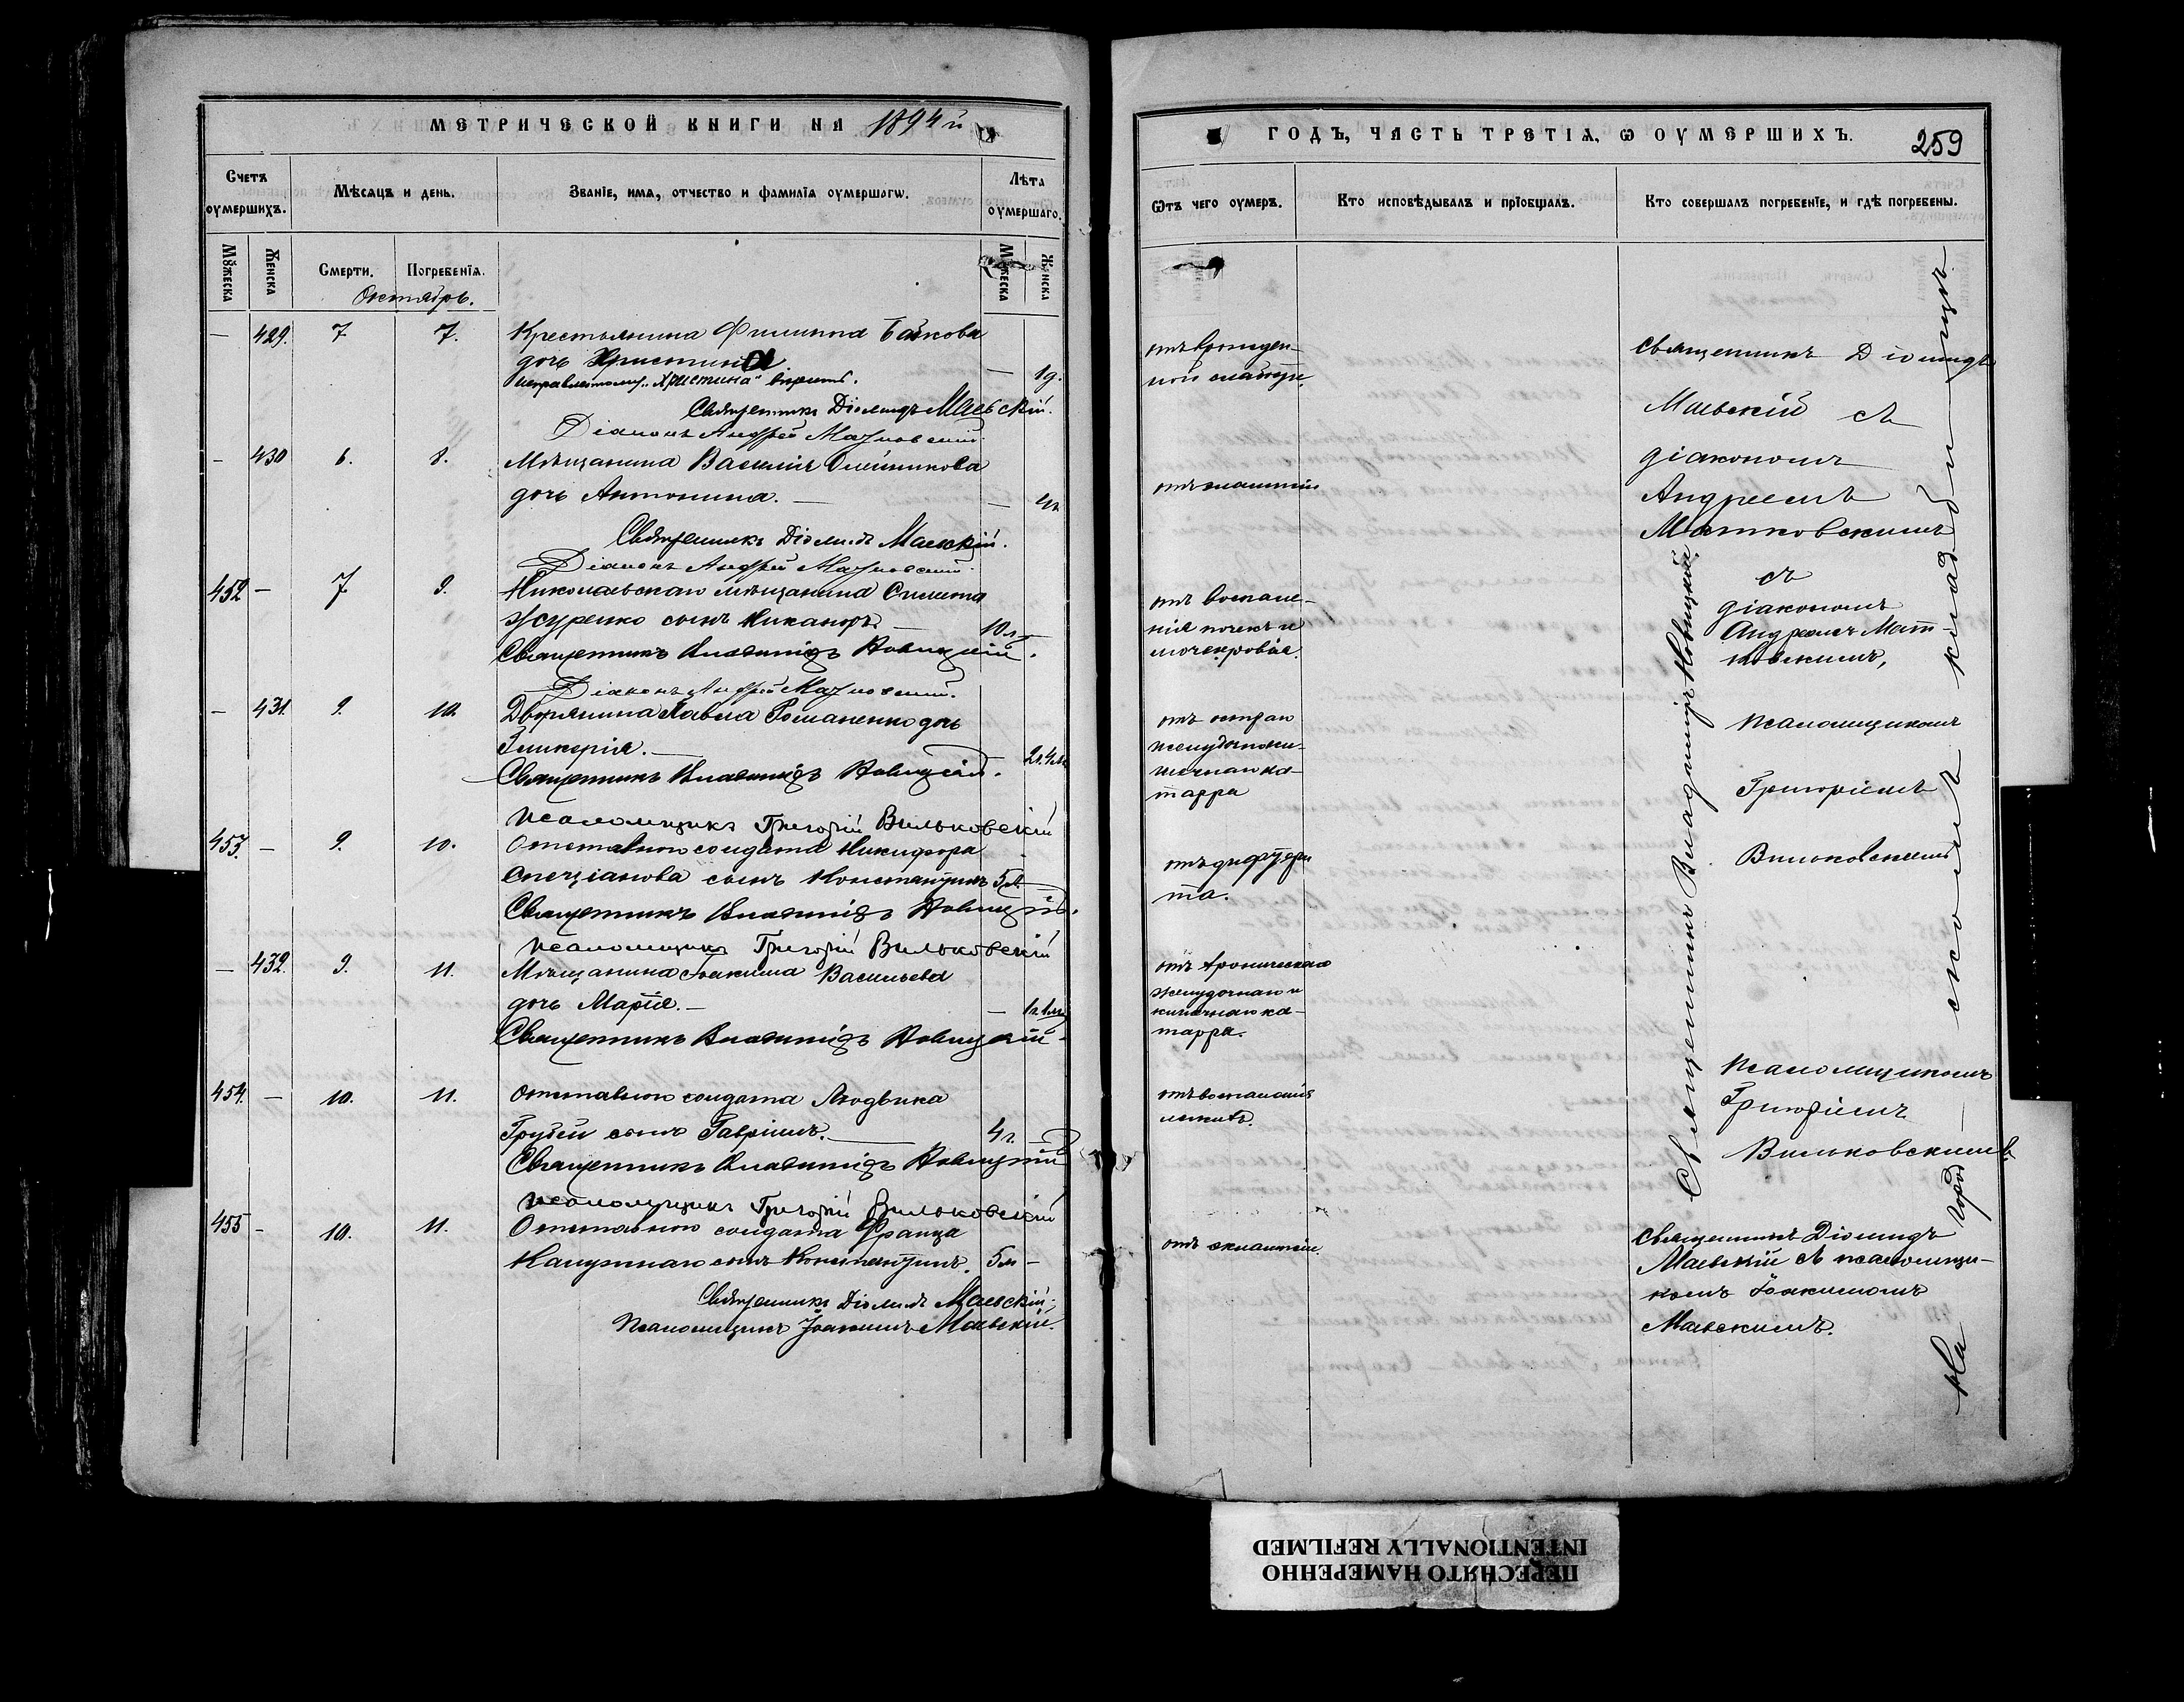 МЕТРИЧЕСКОЙ КНИГИ НА 1894 й
Счетъ оумершихъ.
Мѣсяцъ и день.
Званіе, имя, отчество и фамилія оумершагѡ.
Лѣта оумершаго.
Мужеска
Женска
Смерти.
Погребенія.
Мужеска
Женска
Октябрь.
— 429. 7 7. Крестьянина Филиппа Байкова
дочь Христина — 1 д.
исправленному „Христина" вѣрить.
Священникъ Діомидъ Маевскій.
Діаконъ Андрей Матковскій.
— 430 6. 8. Мѣщанина Василія Олейникова
дочь Антонина. —
Священникъ Діомидъ Маевскій.
Діаконъ Андрей Матковскій.
452 — 7 9. Николаевскаго мѣщанина
сынъ Никаноръ. — 10 л. —
Священникъ Владиміръ Новицкій.
Діаконъ Андрей Матковскій.
— 431. 9. 10. Дворянина Павла Романенко дочь
Гликерія. — 2 г. 4 м.
Священникъ Владиміръ Новицкій.
Псаломщикъ Григорій Вильковскій
453. — 9. 10. Отставного солдата Никифора
сынъ Константинъ 5 л. —
Священникъ Владиміръ Новицкій.
Псаломщикъ Григорій Вильковскій
— 432. 9. 11. Мѣщанина Іоакима Васильева
дочь Марія. — — 1 г. 1 м.
Священникъ Владиміръ Новицкій.
454. — 10. 11. Отставного солдата Людвика
сынъ Гавріилъ. — 4 г. —
Священникъ Владиміръ Новицкій
Псаломщикъ Григорій Вильковскій
455 — 10. 11. Отставного солдата Франца
сынъ Константинъ. 5 м —
Священникъ Діомидъ Маевскій;
Псаломщикъ Іоакимъ Маевскій.
ГОДЪ, ЧАСТЬ ТРЕТІЯ, Ѡ ОУМЕРШИХЪ.
259
Ѿтъ чего оумеръ.
Кто исповѣдывалъ и пріобщалъ.
Кто совершалъ погребеніе, и гдѣ погребены.
отъ врожден-
ной слабости
отъ эклампсіи
отъ воспале-
нія почекъ и
мочекровія.
отъ остраго
желудочноки-
шечнаго ка-
тарра
отъ дифтери
та.
отъ хроническаго
желудочнаго и
кишечнаго ка-
тарра.
отъ воспаленія
легкихъ.
отъ эклампсіи.
Священникъ Діомидъ
Маевскій съ
діакономъ
Андреемъ
Матковскимъ
съ
діакономъ
Андреемъ Мат-
ковскимъ,
псаломщикомъ
Григоріемъ
Вильковскимъ
Псаломщикомъ
Григоріемъ
Вильковскимъ
Священникъ Діомидъ
Маевскій съ псаломщи-
комъ Іоакимомъ
Маевскимъ.
Священникъ Владиміръ Новицкій
На город скомъ кладбищѣ
ПЕРЕСНЯТО НАМЕРЕННО
INTENTIONALLY REFILMED